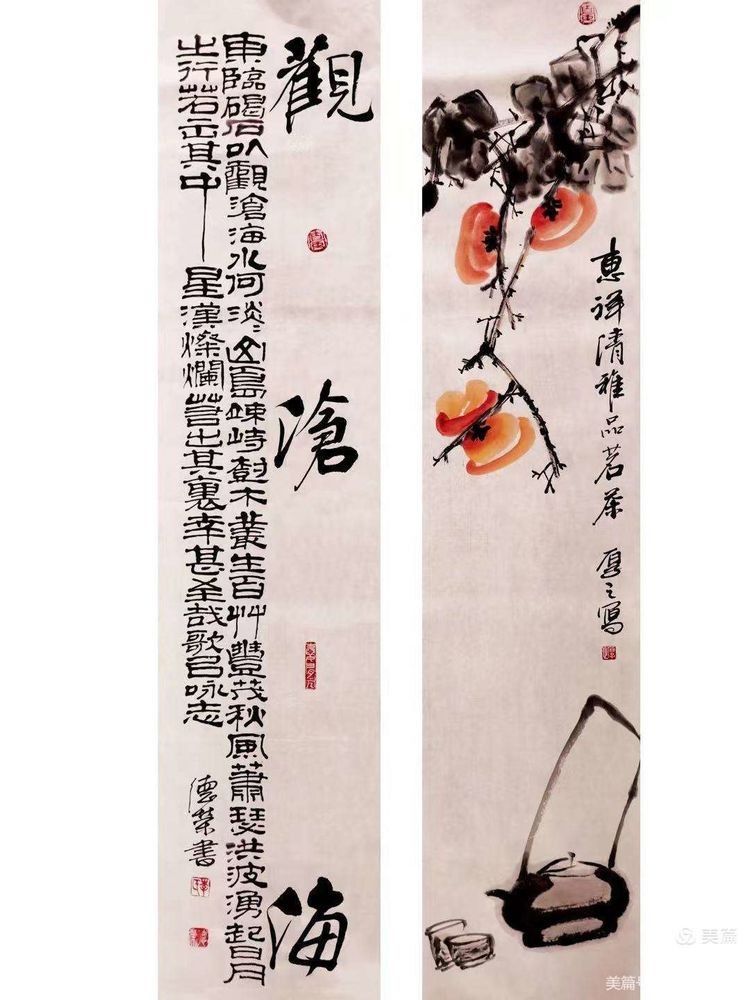 觀滄海
東臨碣石以觀滄海水何淡〻山島竦峙樹木叢生百艸豐茂秋風蕭瑟洪波湧起日月
之行若出其中星漢燦爛若出其裏幸甚至哉歌㠯咏志
德榮書
惠祥清雅品茗茶
厚之寫
美篇
美篇号